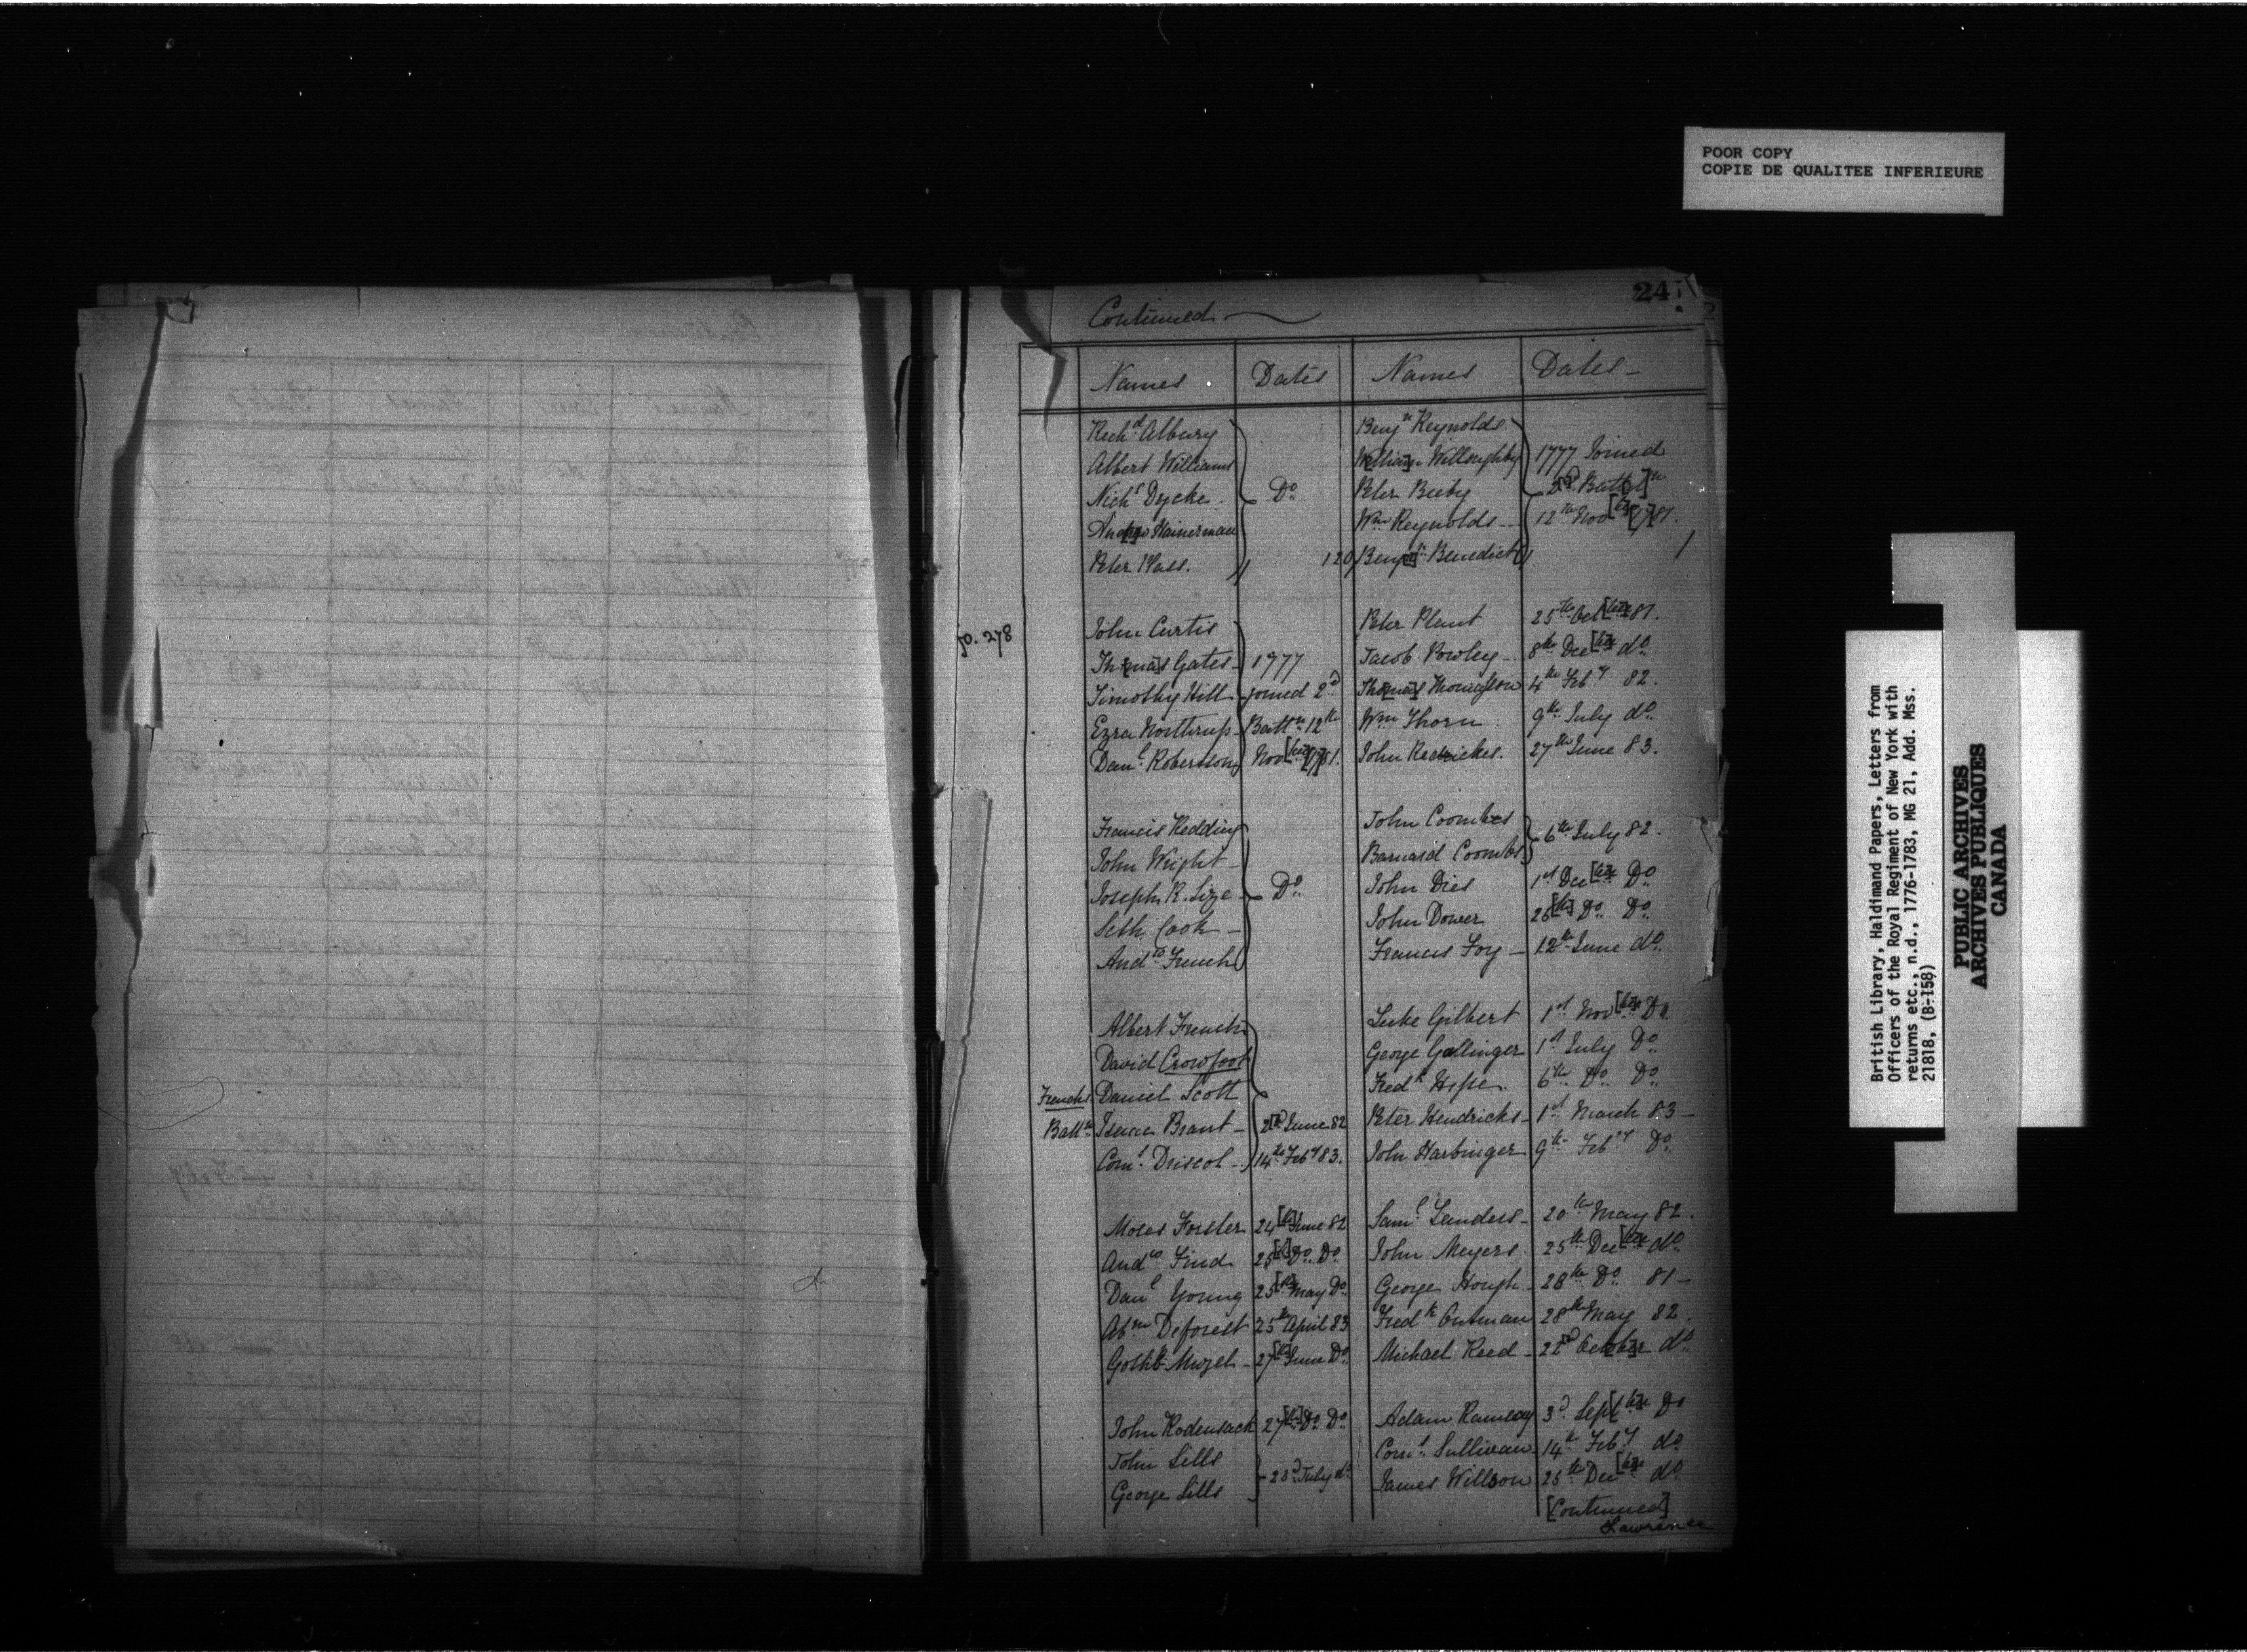 POOR COPY
COPIE DE QUALITEE INFERIEURE
24
Continued
Names Dates Names Dates
Rich.d Albury Benj.n Reynolds
Albert Williams William Willoughby 1777 Joined
Nich.s Dycke Do Peter Beeby 2d Batt
Andrew Hainerman Wm Reynolds 12th Nov[ber] [17]81.
Peter Plass. 120 Benj.n Benedict
p. 278
John Curtis Peter Plant 25th Oct[ber] 81.
Thomas Gates 1777 Jacob Powley 8th Dec[ber] do
Timothy Hill joined 2d Thomas 4th Feby 82.
Ezra Northrup Battn 12th Wm Thorn 9th July do
Danl. Robertson Nov[ber] [17]81. John 27th June 83.
Francis Redding John Coombes
John Wright Barnard Coombs 6th July 82.
Joseph R. Lize Do John Dies 1st Dec[ber] Do
Seth Cook John Dower 26[th] Do Do
Andw French Francis Foy 12th June do
Albert French Luke Gilbert 1st Nov[ber] Do
David Crowfoot George Gallinger 1st July Do
Frenchs Daniel Scott Fredk Hesse 6th Do Do
Battn Isaac Brant 2[d] June 82 Peter Hendricks 1st March 83
Corns. Driscol 14th Feby 83. John Harbinger 9th Feby Do
Moses Forster 24[th] June 82 Saml Landers 20th May 82.
Andw Find 25[th] Do Do John Meyers 25th Dec[ber] do
Danl Young 25[th] May Do George Hough 28th Do 81
Abm Deforest 25th April 83 Fredk Outman 28th May 82.
27[th] June Do Michael Reed 22d October do
John Rodensack 27[th] Do Do Adam Ramsay 3d Sept[ber] Do
John Lills Corns Sullivan 14th Feby do
George Lills 23d July do James Willson 25th Dec[ber] do
[Continued]
Lawrence
British Library, Haldimand Papers, Letters from
Officers of the Royal Regiment of New York with
returns etc., n.d., 1776-1783, MG 21, Add. Mss.
21818, (B-158)
PUBLIC ARCHIVES
ARCHIVES PUBLIQUES
CANADA